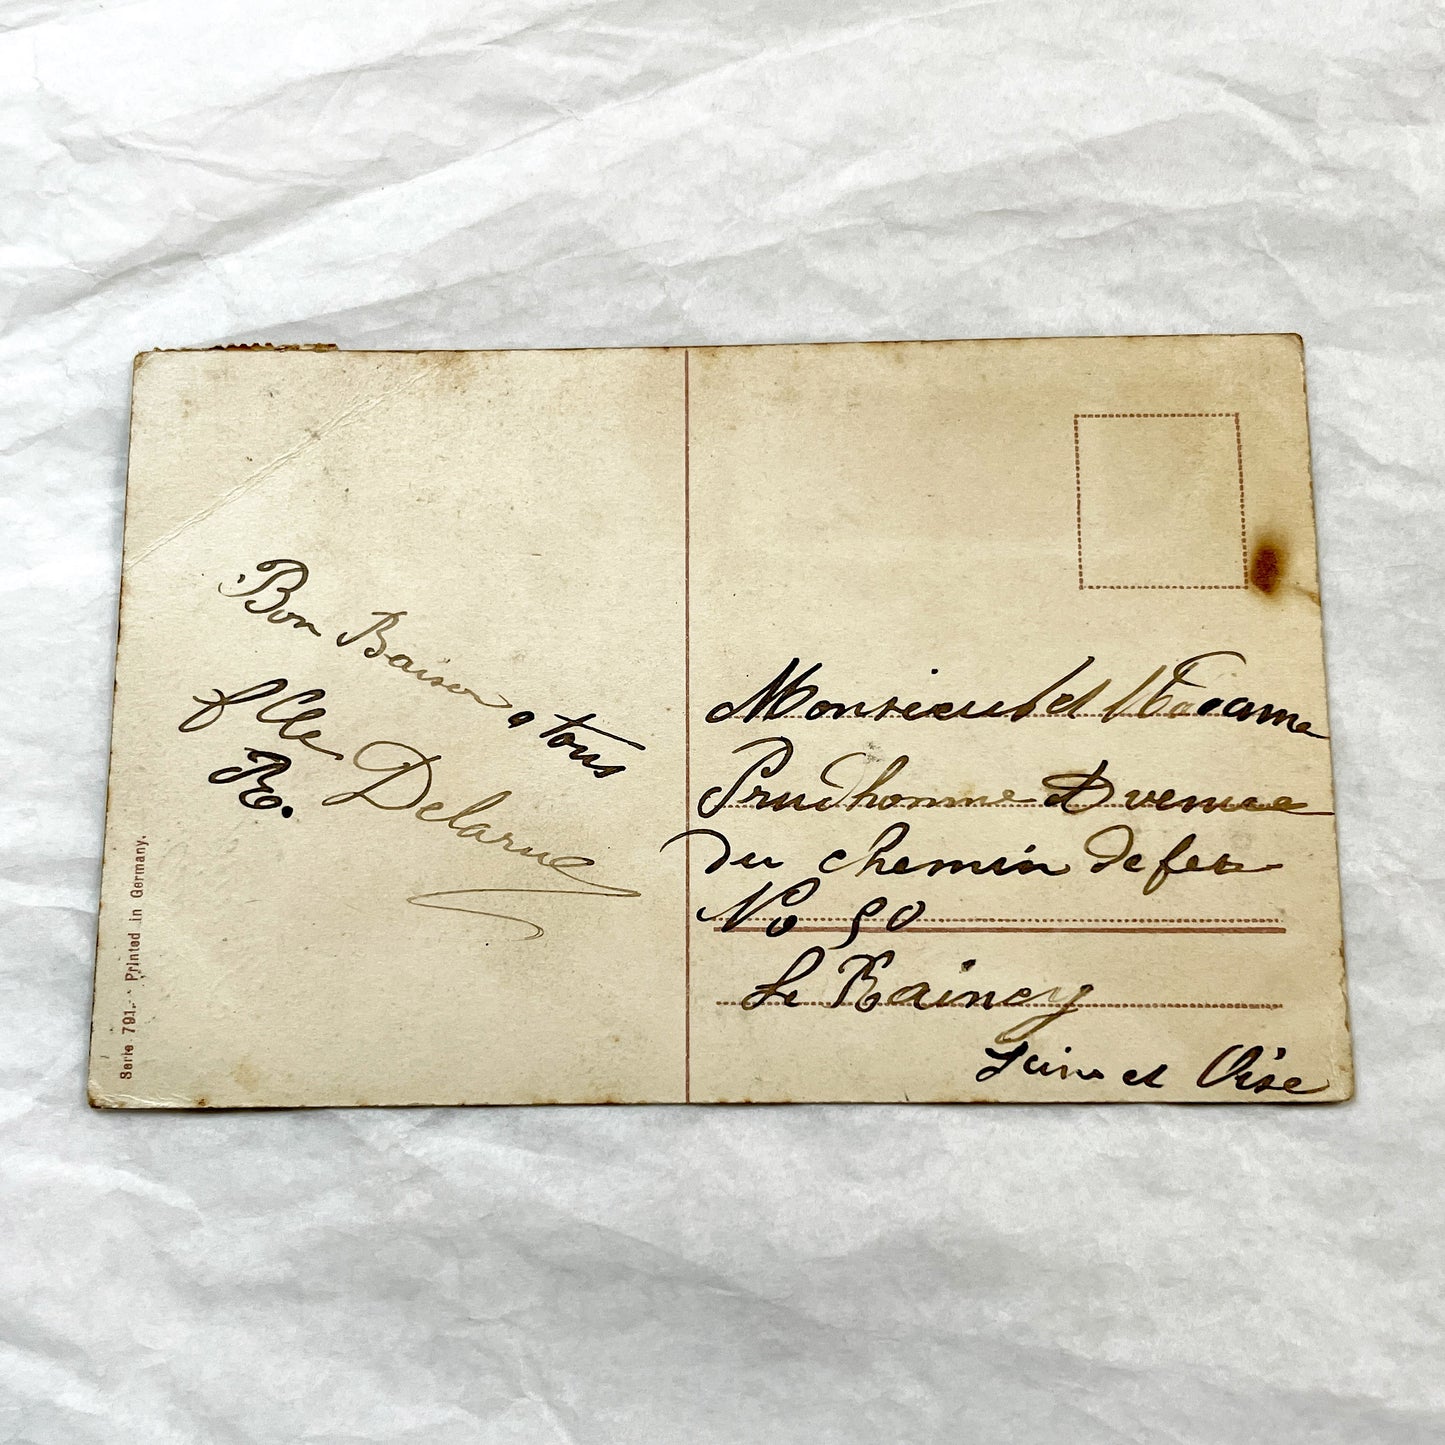 Bon Baiser a tous
flle Delarue
R.
Monsieur et Madame
Prudhomme Avenue
du chemin de fer
No 90
Le Raincy
Seine et Oise
Serie 791. - Printed in Germany.